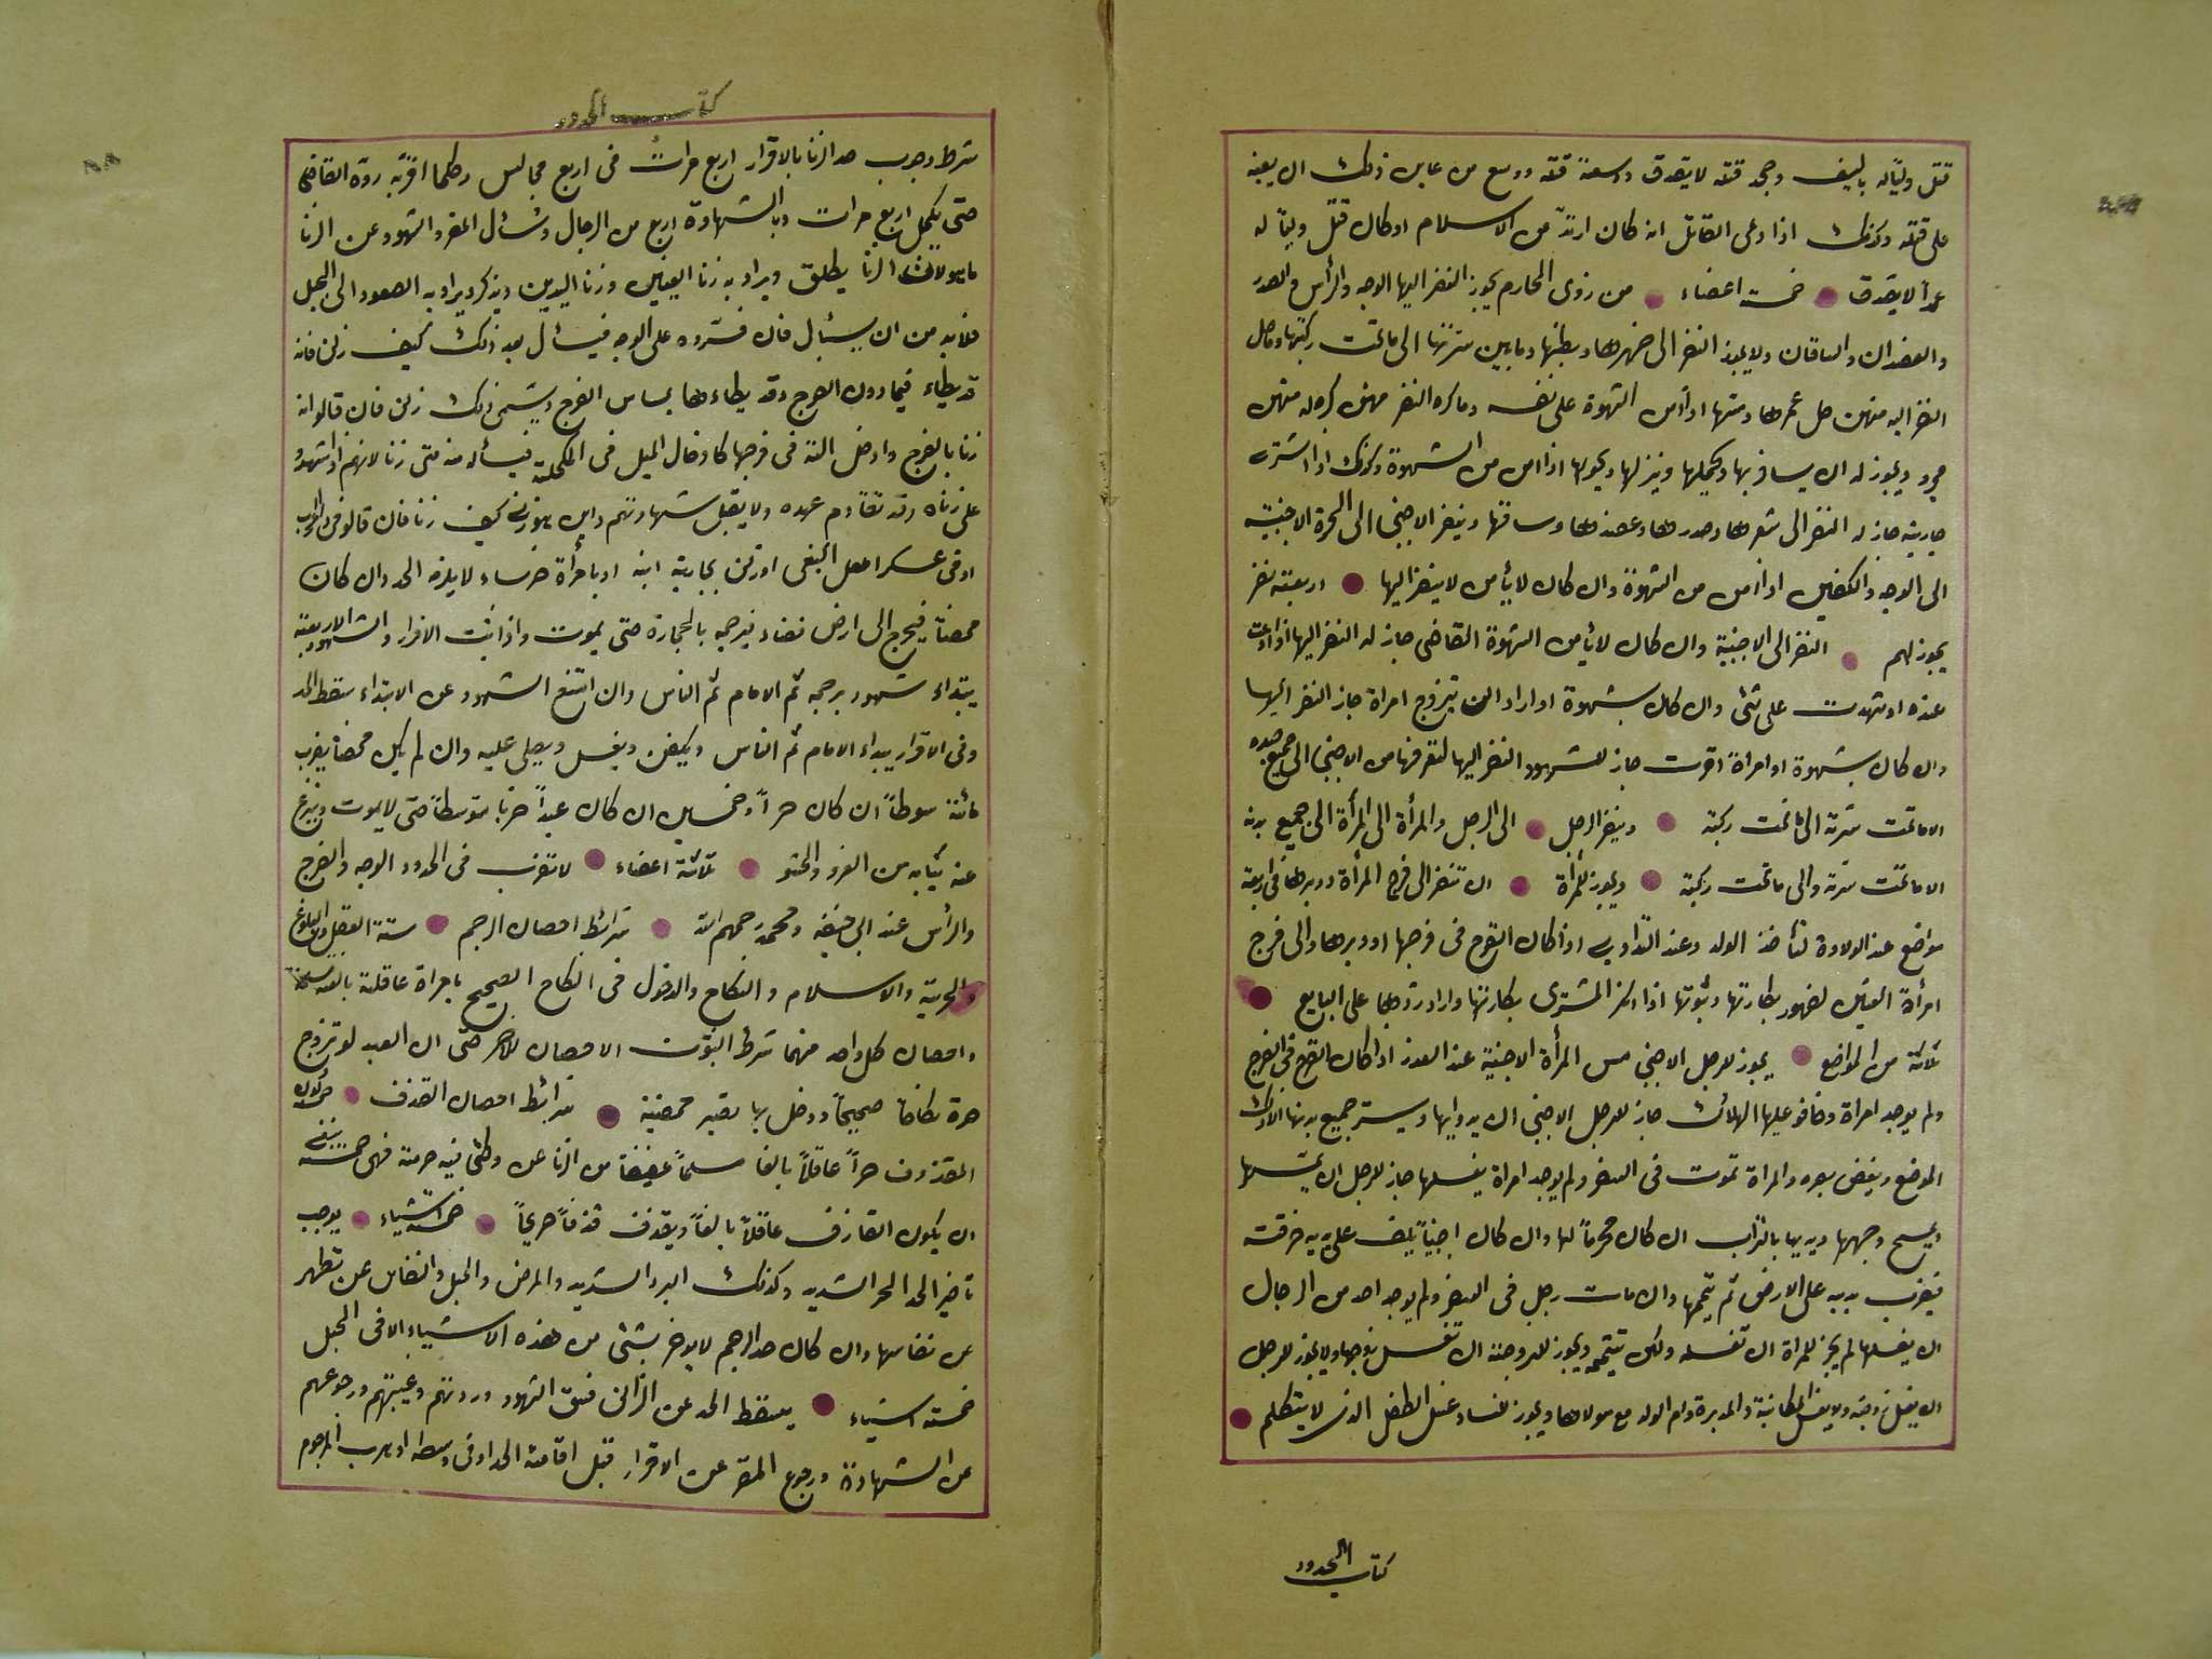 قتل وليّاله بالسيف وجحد قتله لا يصدق ووسعه قتله ووسع من عاين ذلك ان يعينه
على قتله وكذلك اذا ادعى القاتل انه كان ارتدّ من الاسلام او كان قتل وليّا له
عمداً لا يصدق خمسة اعضاء من ذوى المحارم يجوز النضر اليها الوجه والرأس والصدر
والعضدان والساقان ولا يجوز النضر الى ضهرها وبطنها وما بين سرّتها الى ما تحت ركبتها وما حل
النضر اليه منهن حل غمزها ومسّها اذا امن الشهوة على نفسه وما كره النضر منهن كره له منهن
ويجوز له ان يسافر بها ويحملها وينزلها اذا امن من الشهوة وكذلك اذا اشترى
جارية جاز له النضر الى شعرها وصدرها وعضدها وساقها وينضر الاجنبى الى الحرة الاجنبية
الى الوجه والكفين اذا امن من الشهوة وان كان لا يأمن لا ينضر اليها اربعة نفر
يجوز لهم النضر الى الاجنبية وان كان لا يأمن الشهوة القاضى جاز له النضر اليها اذا ادعت
عنده او شهدت على شئ وان كان بشهوة او اراد ان يتزوج امراة جاز النضر اليها
وان كان بشهوة او امراة اقرت جاز للشهود النضر اليها لتعرفها من الاجنبى الى جميع جسده
الا ما تحت سرته الى ما تحت ركبته وينضر الرجل الى الرجل والمرأة الى المرأة الى جميع بدنه
الا ما تحت سرته والى ما تحت ركبته ويجوز للمرأة ان تنضر الى فرج المرأة ودبرها فى اربعة
مواضع عند الولادة لتأخذ الولد وعند التداوى اذا كان القرح فى فرجها او دبرها والى فرج
امرأة العنين لضهور بكارتها وثيوبتها اذا انكر المشترى بكارتها واراد ردها على البايع
ثلاثة من المواضع يجوز للرجل الاجنبى مس المرأة الاجنبية عند العذر اذا كان القرح فى الفرج
ولم يوجد امراة وخافو عليها الهلاك جاز للرجل الاجنبى ان يداويها ويستر جميع بدنها الا ذلك
الموضع ويغض بصره والمراة تموت فى السفر ولم يوجد امراة يغسلها جاز للرجل ان ييممها
ويمسح وجهها ويديها بالتراب ان كان محرماً لها وان كان اجنبياً يلف على يديه خرقة
فيضرب يديه على الارض ثم يتيممها وان مات رجل فى السفر ولم يوجد احد من الرجال
ان يغسلها لم يجز للمراة ان تغسله ولكن تيتممه ويجوز للزوجة ان تغسل زوجها ولا يجوز للرجل
ان يغسل زوجته ولا يغسل المكاتبة والمدبرة وام الولد مع مولاها ويجوز للنساء غسل الطفل الذى لا يتكلم
كتاب الحدود
كتاب الحدود
شرط وجوب حد الزنا بالاقرار اربع مرات فى اربع مجالس وكلما اقرّ به ردّه القاضى
حتى يكمل اربع مرات وبالشهادة اربع من الرجال ويسأل المقر والشهود عن الزنا
ما هو لان الزنا يطلق ويراد به زنا العينين وزنا اليدين ويذكر ويراد به الصعود الى الجبل
فلابد من ان يسئل فان فسّروه على الوجه فيسئل بعد ذلك كيف زنى فانه
قد يطاء فيما دون الفرج وقد يطاءها بمساس الفرج ويسمى ذلك زنى فان قالوا انه
زنا بالفرج وادخل الته فى فرجها كادخال الميل فى المكحلة فيسأله متى زنا لانهم اذا شهدو
على زناه وقد تقادم عهده ولا يقبل شهادتهم واين زنا فان قالو فى دار الحرب
او فى عسكر اهل البغى او زنى بجارية ابنه او بامرأة خرساء لا يلزمه الحد وان كان
محصناً فيخرج الى ارض فضاء فيرجمه بالحجارة حتى يموت واذا ثبت الاقرار والشهود الاربعة
يبتداء شهود برجمه ثم الامام ثم الناس وان امتنع الشهود عن الابتداء سقط الحد
وفى الاقرار يبداء الامام ثم الناس ويكفن ويغسل ويصلى عليه وان لم يكن محصناً يضرب
مائة سوطاً ان كان حراً وخمسين ان كان عبداً ضربا متوسطاً حتى لا يموت وينزع
عنه ثيابه من الفرو والحشو ثلاثة اعضاء لا تضرب فى الحدود الوجه والفرج
والرأس عند ابى حنيفه ومحمد رحمهم الله شرائط احصان الرجم ستة العقل والبلوغ
والحرية والاسلام والنكاح والدخول فى النكاح الصحيح بامراة عاقلة بالغه مسلمة
واحصان كل واحد منهما شرط لثبوت الاحصان للاخر حتى ان العبد لو تزوج
حرة نكاحا صحيحاً ودخل بها يصير محصنة شرائط احصان القذف
المقذوف حراً عاقلاً بالغا مسلماً عفيفاً من الزنا عن وطئ فيه حرمة فهى خمسة ينبغى
ان يكون القاذف عاقلاً بالغاً ويقذف قذفاً صريحاً خمسة اشياء يوجب
تاخير الحد الحر الشديد وكذلك البرد الشديد والمرض والحبل والنفاس عن تطهر
من نفاسها وان كان حد الرجم لا يوخر بشئ من هذه الاشياء الا فى الحبل
خمسة اشياء يسقط الحد عن الزانى فسق الشهود وردتهم وغيبتهم ورجوعهم
عن الشهادة ورجوع المقر عن الاقرار قبل اقامة الحد او فى وسطه او هرب المرجوم